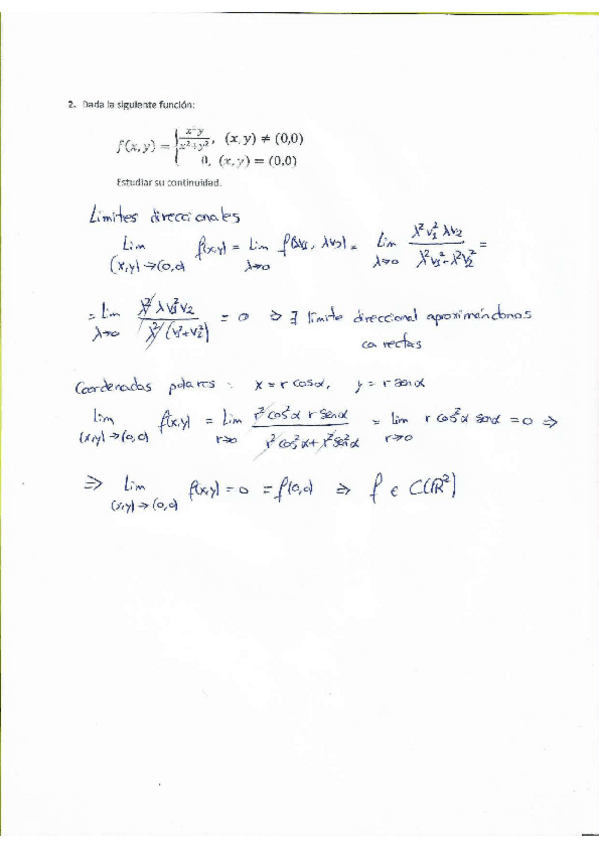 2. Dada la siguiente función:
f(x, y) = { x²y / x²+y², (x, y) ≠ (0,0)
0, (x, y) = (0,0)
Estudiar su continuidad.
Límites direccionales
Lim (x,y)→(0,0) f(x,y) = Lim λ→0 f(λv₁, λv₂) = Lim λ→0 λ²v₁² λv₂ / λ²v₁²+λ²v₂² =
= Lim λ→0 λ² λv₁²v₂ / λ²(v₁²+v₂²) = 0 ⇒ ∃ límite direccional aproximándonos
con rectas
Coordenadas polares : x = r cosα, y = r senα
lim (x,y)→(0,0) f(x,y) = Lim r→0 r²cos²α r senα / r²cos²α + r²sen²α = Lim r→0 r cos²α senα = 0 ⇒
⇒ Lim (x,y)→(0,0) f(x,y) = 0 = f(0,0) ⇒ f ∈ C(ℝ²)